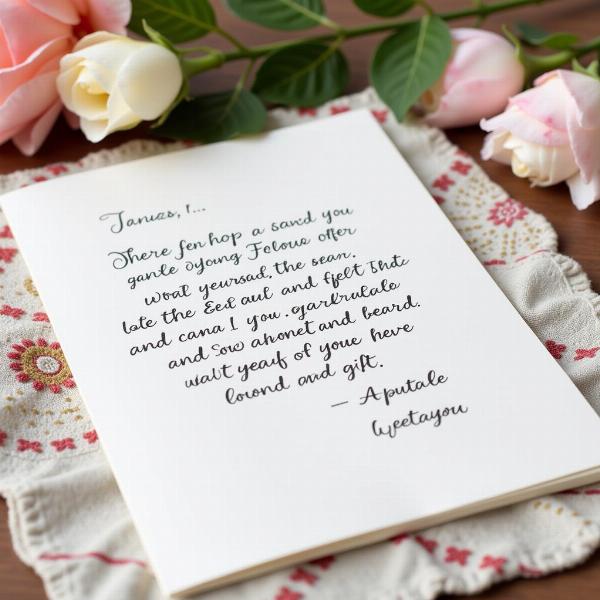 Januzs, I...
There fen hop a sand you
gante oyoung Folouo offer
woat yoursad, the sean.
late the Eed aul and fjelt Thtc
and cana I you . ogarktulate
and Sow ahonet and beard.
walt yeauf of youe heve
lound and gift.
— Aputale
Lyeetayou